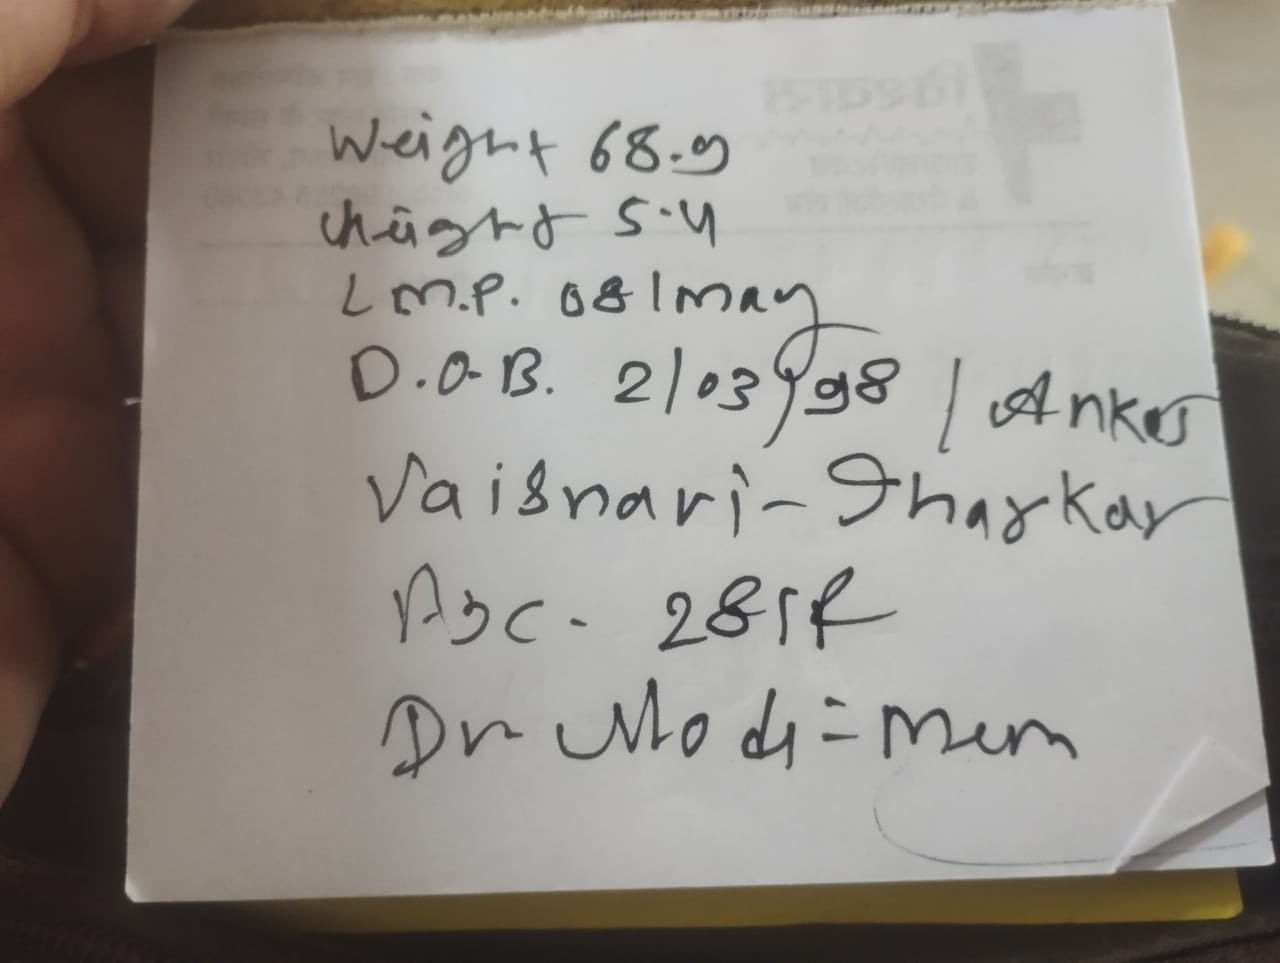 Weight 68.9
Height 5.4
L M.P. 08/May
D.O.B. 2/03/98 / Ankes
Vaisnavi - Tharkar
Dr Modi = Mem